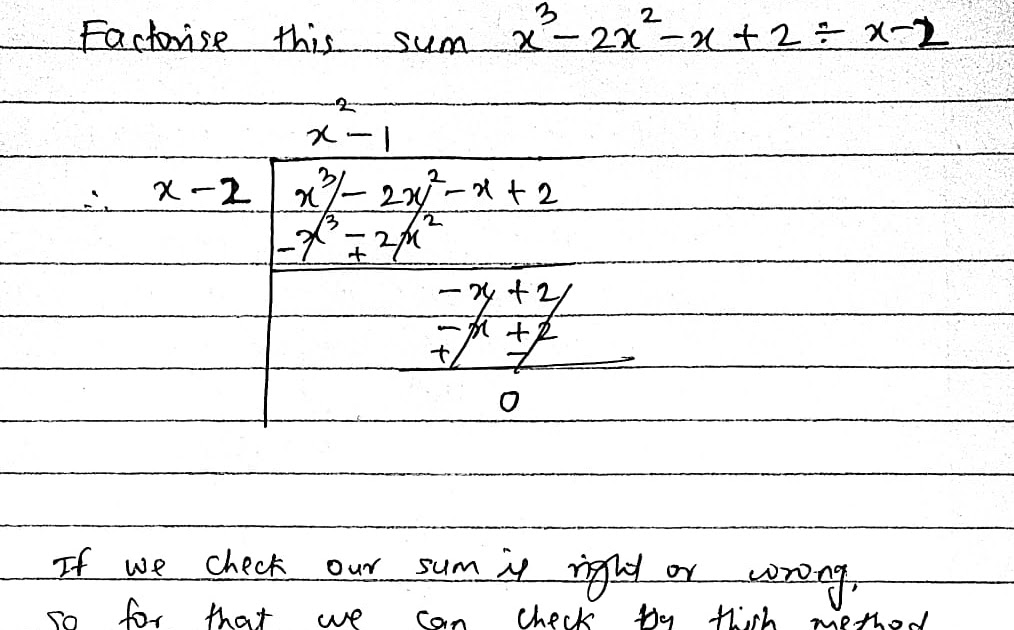 Factorise this sum x³ - 2x² - x + 2 ÷ x - 2
x² - 1
∴ x - 2 x³ - 2x² - x + 2
- x³ - 2x²
+
- x + 2
- x + 2
+ -
0
If we check our sum is right or wrong,
so for that we can check by thish method